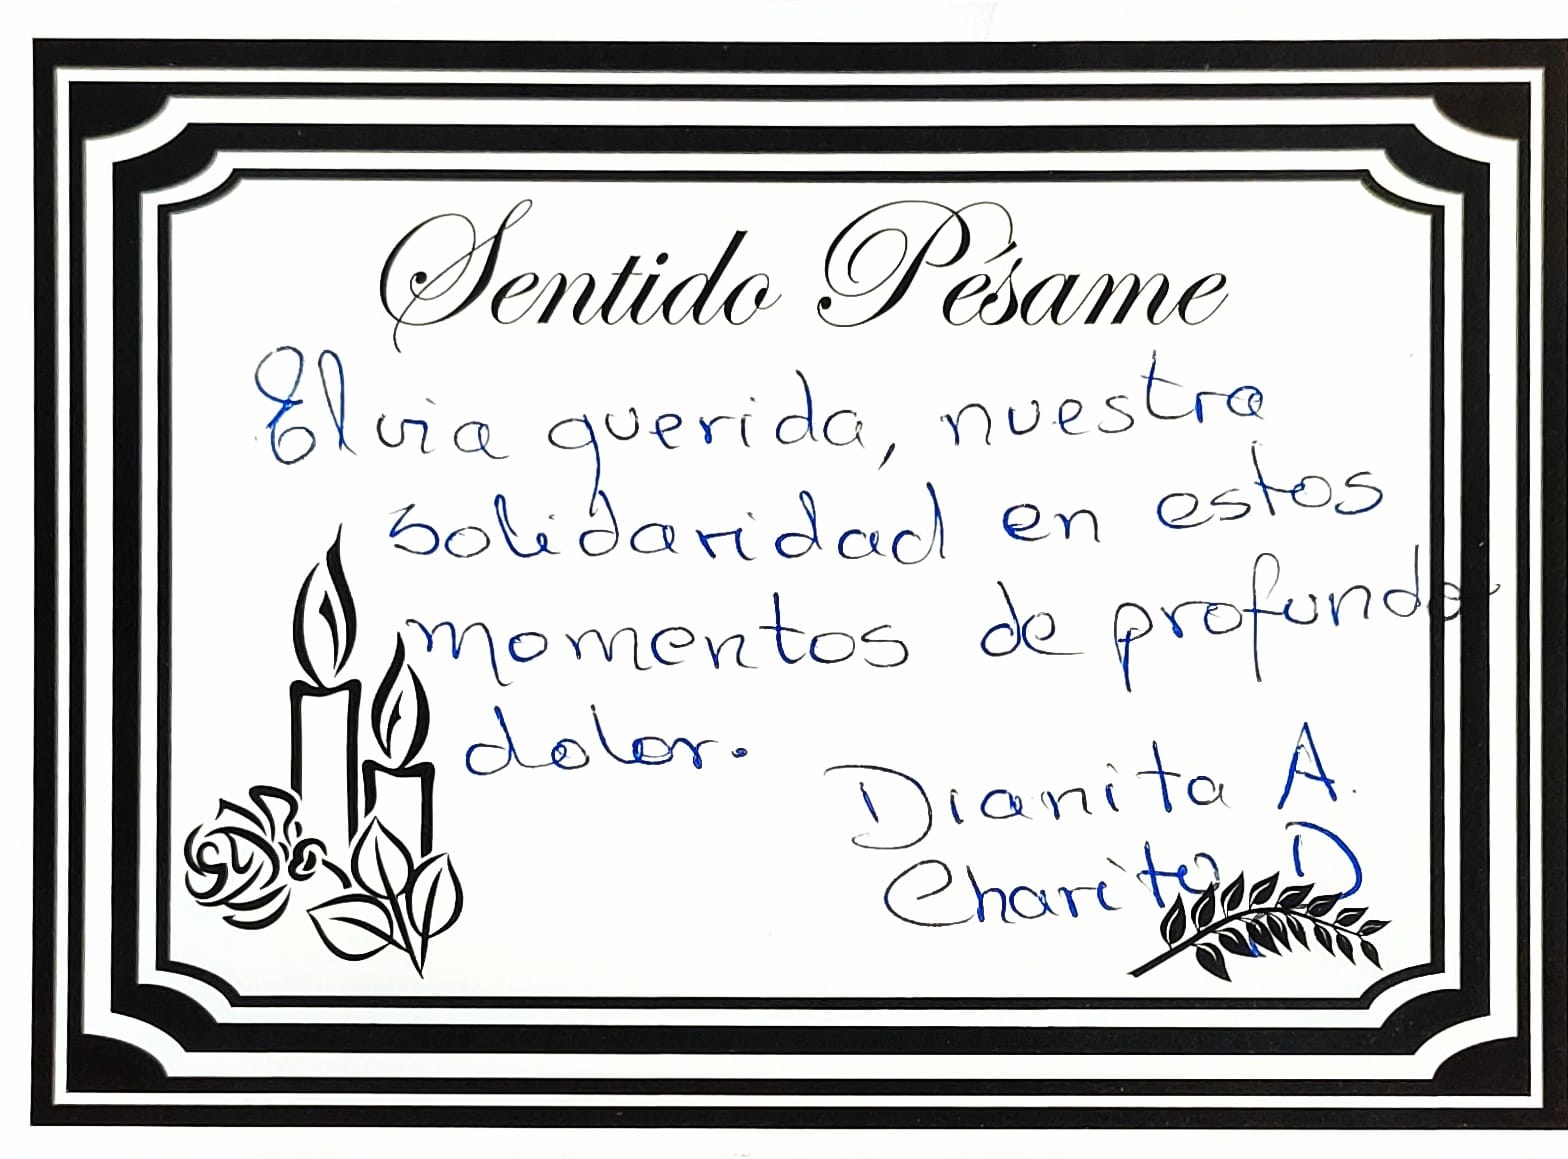 Sentido Pésame
Elvia querida, nuestra
solidaridad en estos
momentos de profundo
dolor.
Dianita A.
Charito D